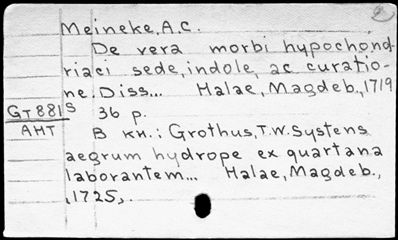 Meineke, A.C.
De vera morbi hypochond-
riaci sede, indole, ac curatio-
ne. Diss... Halae, Magdeb., 1719
GT 881 S 36 p.
AHT В кн.: Grothus, T.W. Systens
aegrum hydrope ex quartana
laborantem... Halae, Magdeb.,
,1725,.